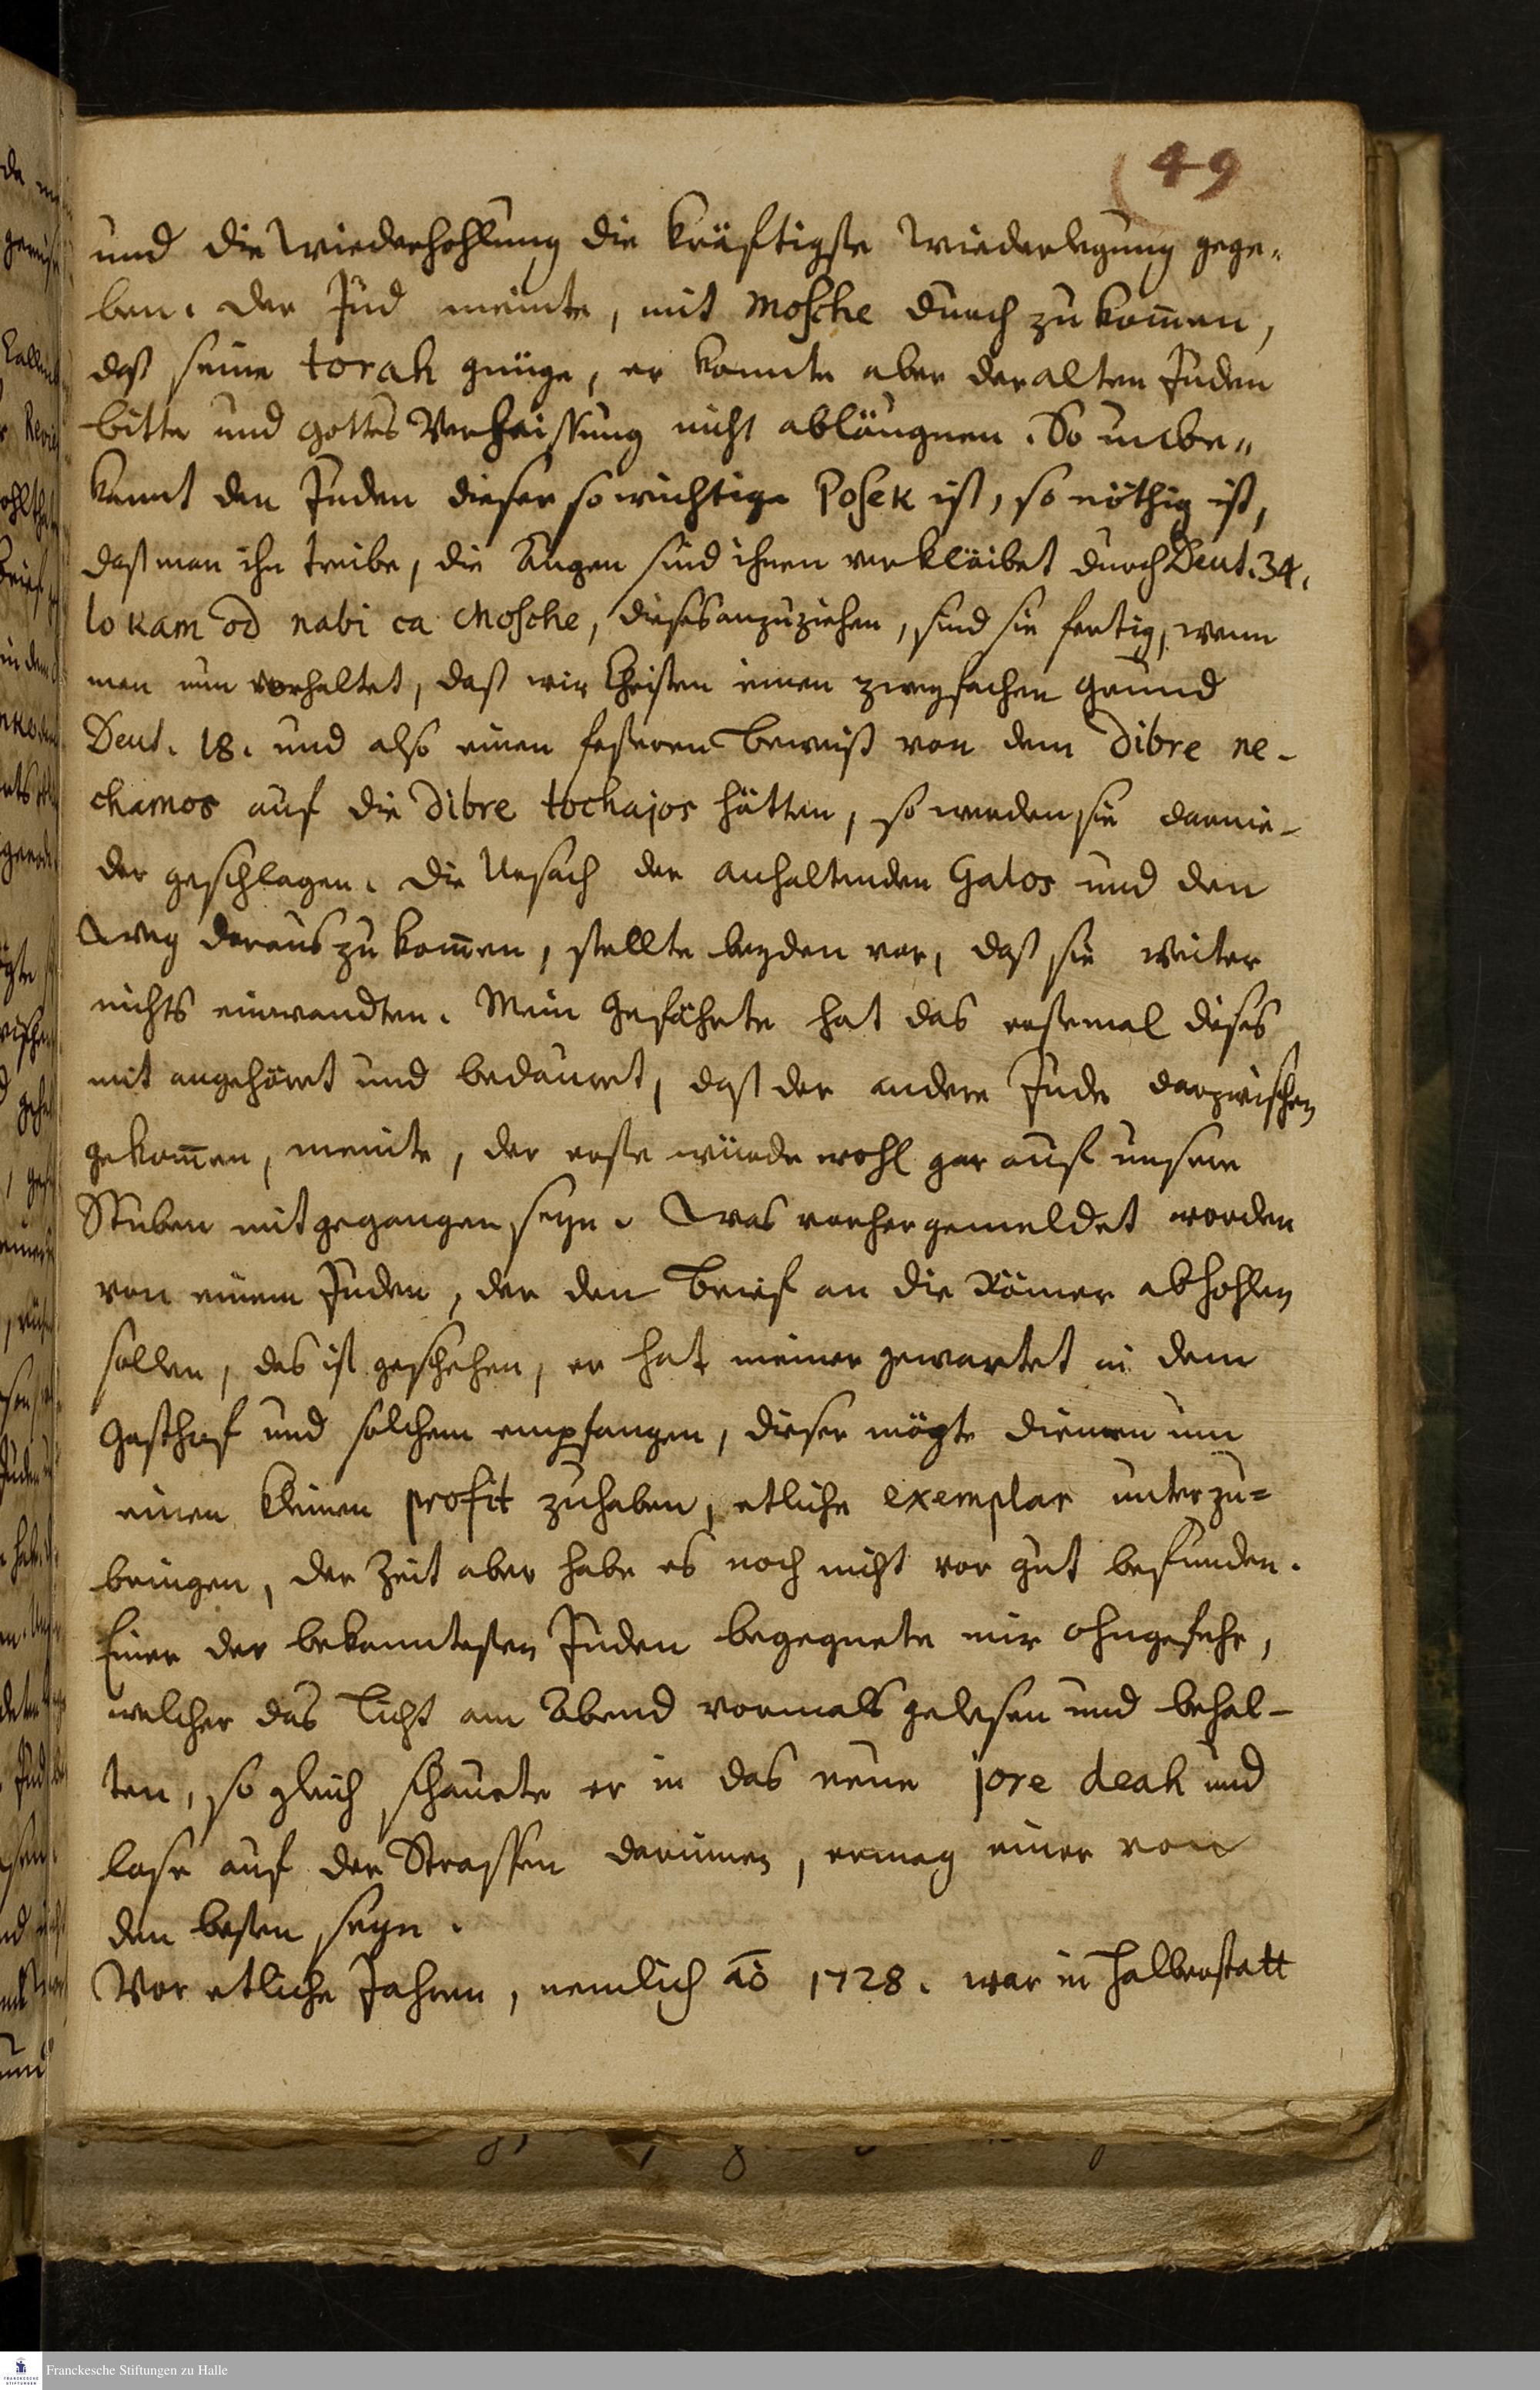 (49
und die Wiederhohlung die kräftigste Wiederlegung gege-
ben. Der Jud meinte, mit Mosche durch zu kom̄en,
daß seine torah gnüge, er konnte aber der alten Juden
bitte und Gottes Verheissung nicht abläugnen. So unbe-
kannt den Juden dieser so wichtige Posek ist, so nöthig ist,
daß man ihn treibe, die Augen sind ihnen verkläibet durch Deut. 34.
lo kam od nabi ca Mosche, dieses anzuziehen, sind sie fertig, wenn
man nun vorhaltet, daß wir Christen einen zweyfachen Grund
Deut. 18. und also einen festeren Beweiß von dem Dibre ne-
chamos auf die Dibre tochajos hätten, so werden sie darnie-
der geschlagen. Die Ursach der anhaltenden Galos und den
Weg daraus zu kom̄en, stellte beyden vor, daß sie weiter
nichts einwandten. Mein Gefährte hat das erstemal dieses
mit angehöret und bedauret, daß der andere Jude darzwischen
gekom̄en, meinte, der erste würde wohl gar auf unsere
Stuben mit gegangen seyn. Was vorher gemeldet worden
von einem Juden, der den Brief an die Römer abhohlen
sollen, das ist geschehen, er hat meiner gewartet in dem
Gasthof und solchem empfangen, dieser mögte dienen um
einen kleinen profit zuhaben, etliche exemplar unterzu-
bringen, der Zeit aber habe es noch nicht vor gut befunden.
Einer der bekanntesten Juden begegnete mir ohngefehr,
welcher das Licht am Abend vormals gelesen und behal-
ten, so gleich schauete er in das neue jore deah und
lase auf der Strassen darinnen, er mag einer von
den besten seyn.
Vor etliche Jahren, nemlich a͞o 1728. war in Halberstatt
Franckesche Stiftungen zu Halle